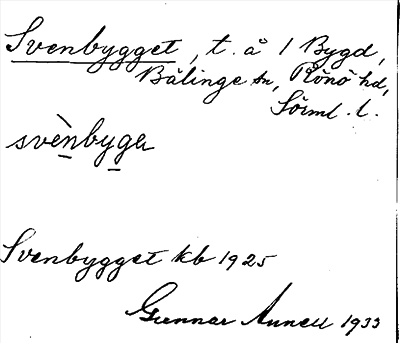 Svenbygget, t. å 1 Bygd,
Bälinge sn, Rönö hd,
Sörml. l.
svènbyga
Svenbygget kb 1925
Gunnar Annell 1933